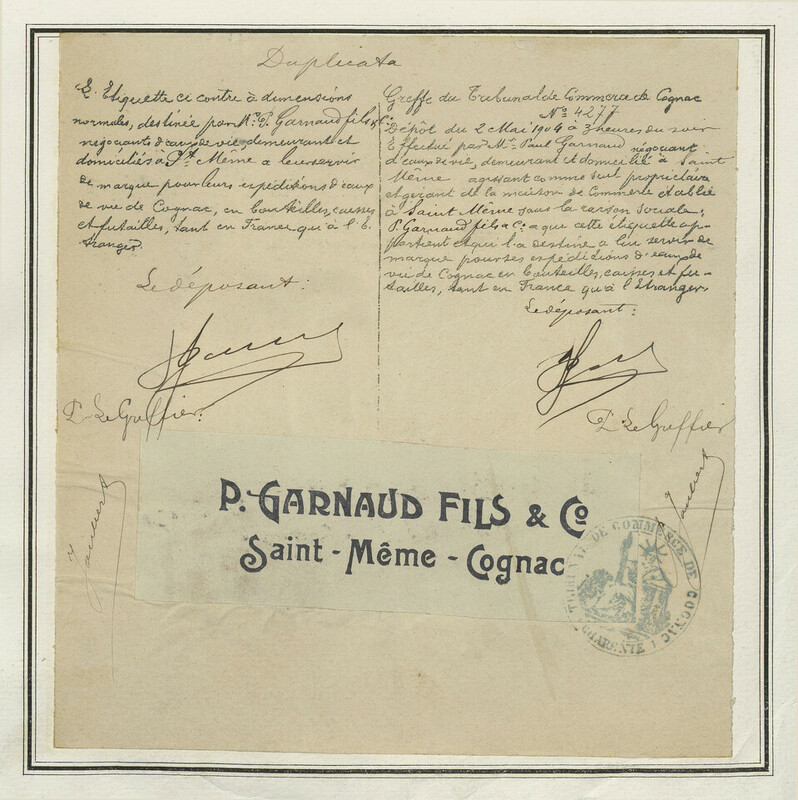 Duplicata
L'Etiquette ci contre à dimensions
normales, destinée par Mrs P. Garnaud fils & Co,
négociants d'eaux de vie, demeurant et
domiciliés à St Même a leur servir
de marque pour leurs expéditions d'eaux
de vie de Cognac, en bouteilles, caisses
et futailles, tant en France qu'à l'é-
tranger.
Le déposant:
P. Le Greffier:
Greffe du Tribunal de Commerce de Cognac
No 4277
Dépôt du 2 Mai 1904 à 3 heures du soir
Effectué par Mr Paul Garnaud négociant
d'eaux de vie, demeurant et domicilié à Saint
Même agissant comme seul propriétaire
et gérant de la maison de Commerce établie
à Saint Même sous la raison sociale:
P. Garnaud fils & Co a que cette étiquette ap-
partient et qui l'a destiné a lui servir de
marque pour ses expéditions d'eaux de
vie de Cognac en bouteilles, caisses et fu-
tailles, tant en France qu'à l'Etranger.
Le déposant:
P. Le Greffier
P. GARNAUD FILS & Co
Saint-Même-Cognac
TRIBUNAL DE COMMERCE DE COGNAC
CHARENTE